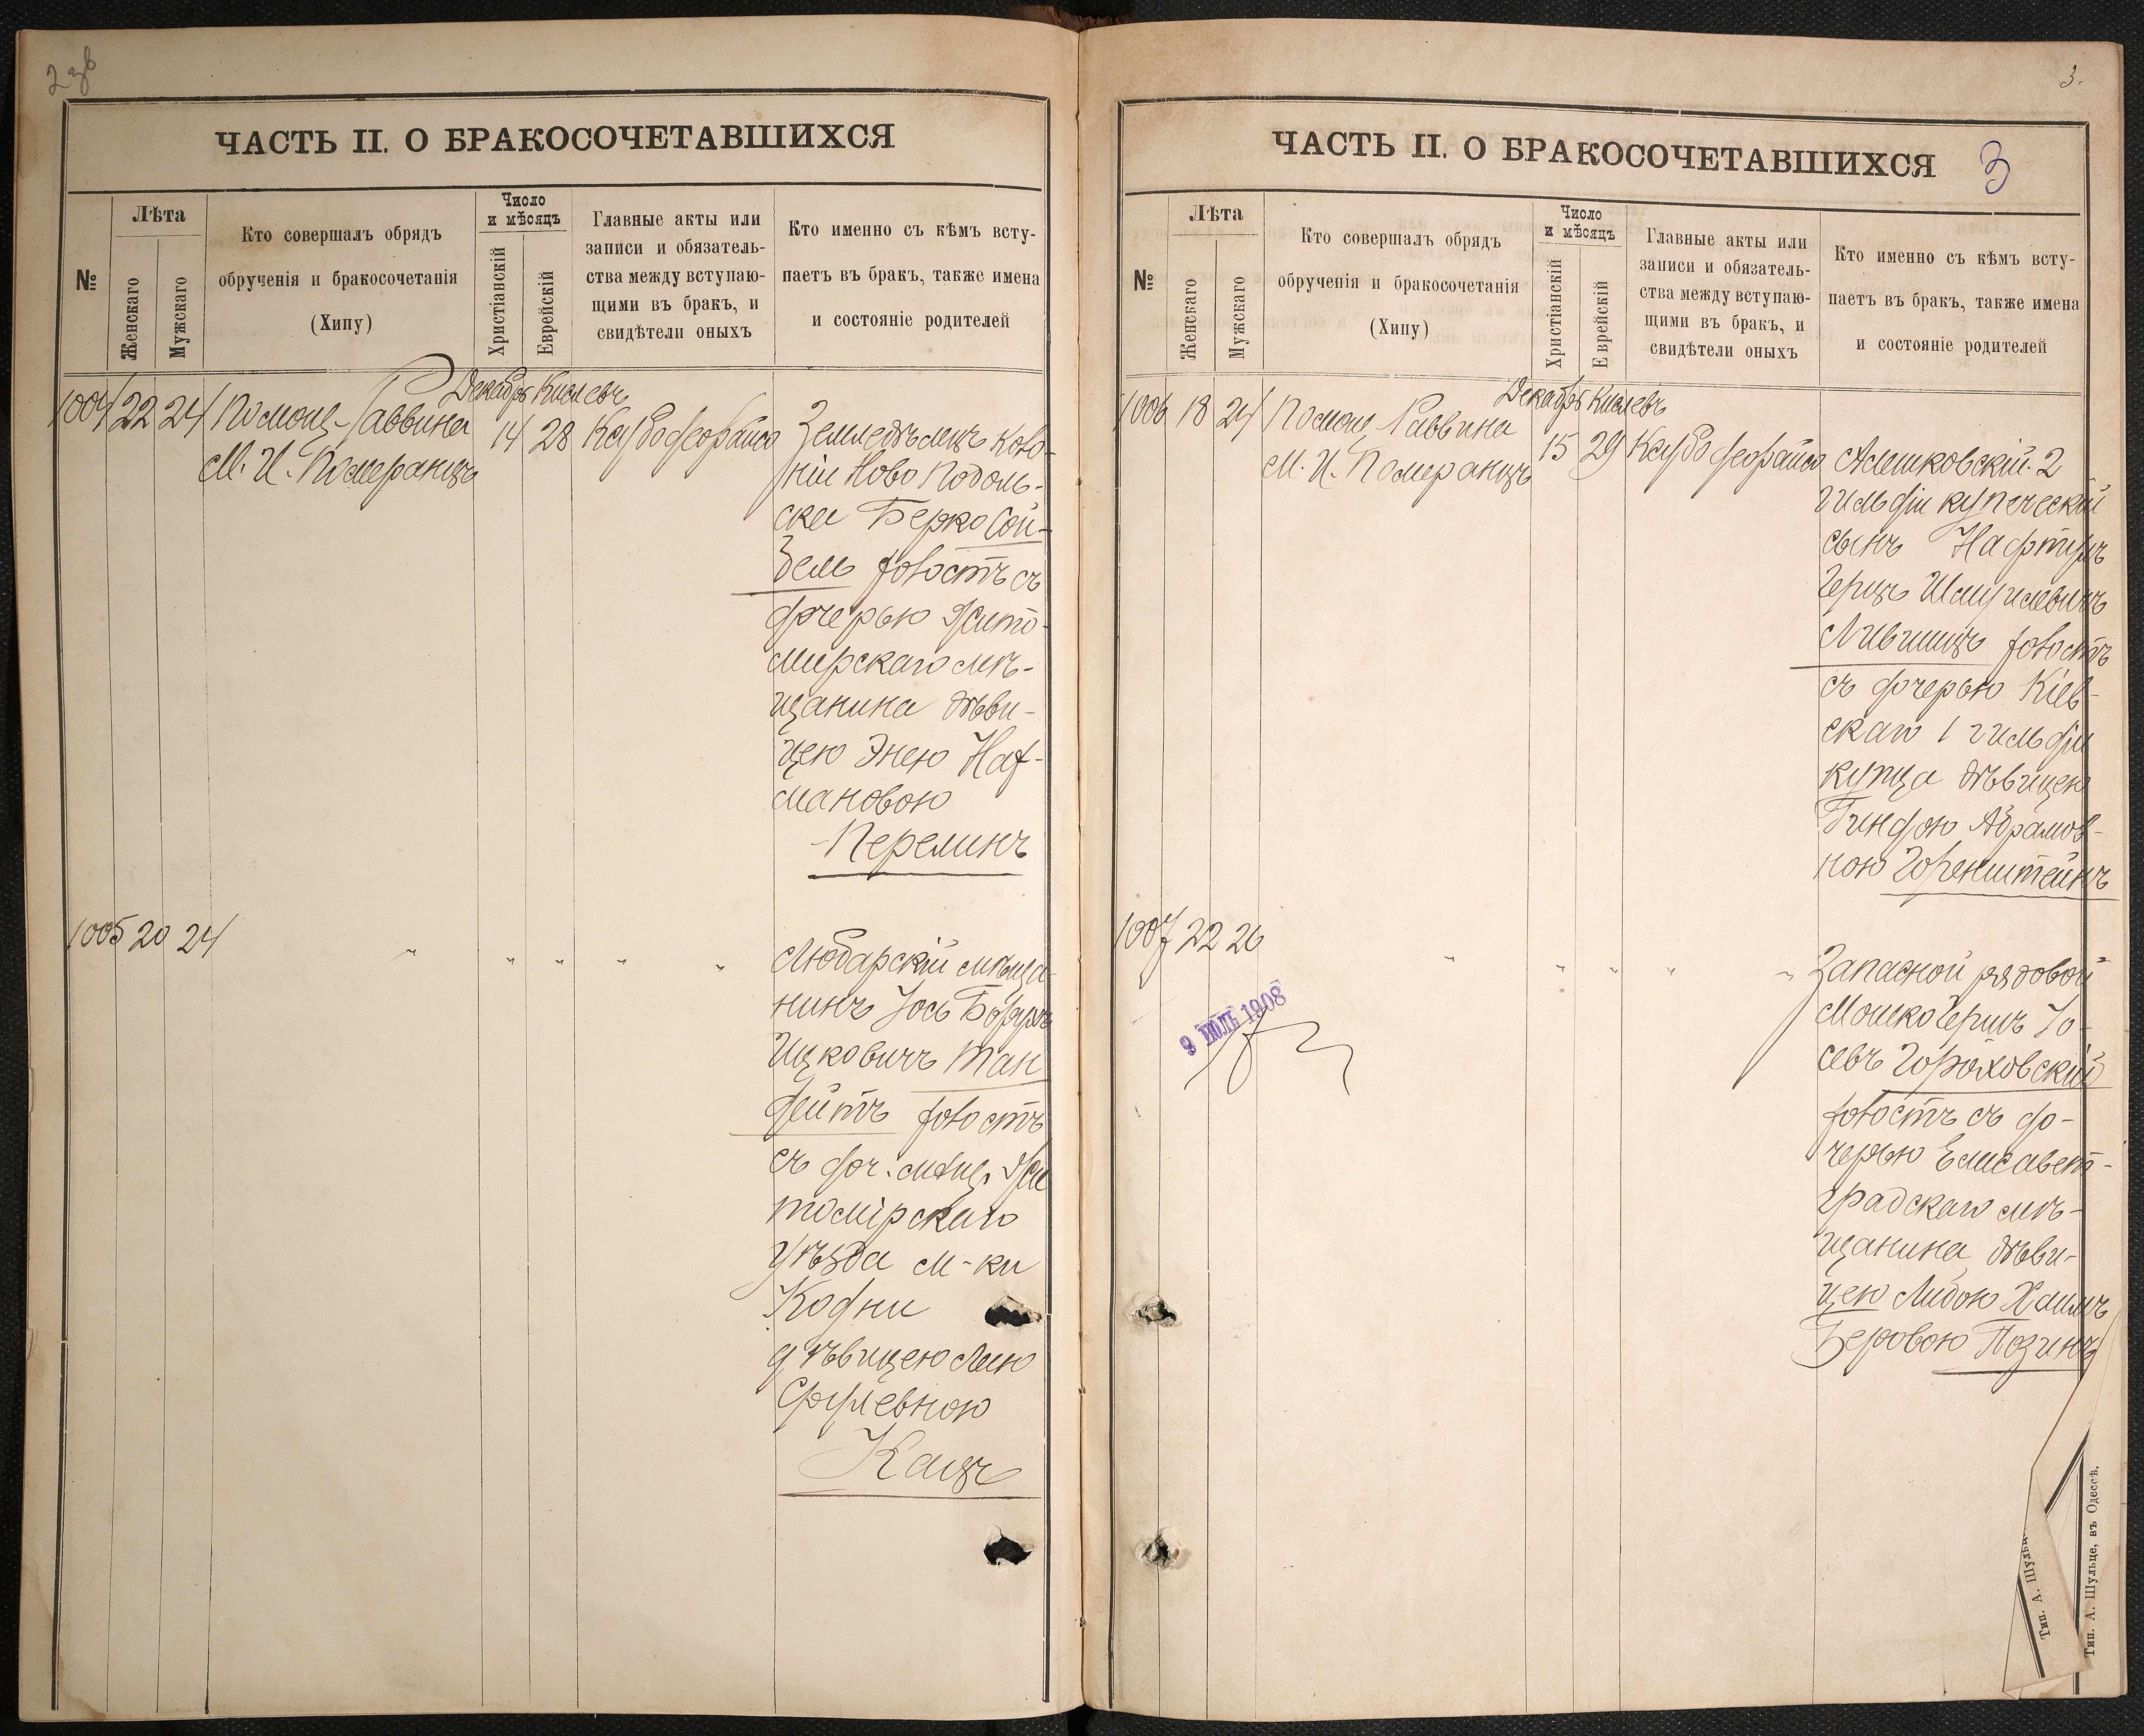 3.
ЧАСТЬ II. О БРАКОСОЧЕТАВШИХСЯ
№
Лѣта
Женскаго
Мужскаго
Кто совершалъ обрядъ
обрученія и бракосочетанія
(Хипу)
Число
и мѣсяцъ
Христіанскій
Еврейскій
Главные акты или
записи и обязатель-
ства между вступаю-
щими въ бракъ, и
свидѣтели оныхъ
Кто именно съ кѣмъ всту-
паетъ въ бракъ, также имена
и состояніе родителей
Декабрь Кислевъ
1004 22 24 Помощ. Раввина
М. И. Померанцъ
14 28
Земледѣлецъ коло-
ніи Ново Подоль-
ска Берко Сой-
бель холостъ съ
дочерью Жито-
мирскаго мѣ-
щанина дѣви-
цею Энею Нах-
мановою
Перелинъ
1005 20 24 " " " " "
Любарскій мѣща-
нинъ Іось Борухъ
Ицковичъ Тан
дейтъ холостъ
съ доч. мѣщ. Жи
томірскаго
уѣзда м-ки
Кодни
дѣвицею Леею
Срулевною
Кацъ
ЧАСТЬ II. О БРАКОСОЧЕТАВШИХСЯ 3
№
Лѣта
Женскаго
Мужскаго
Кто совершалъ обрядъ
обрученія и бракосочетанія
(Хипу)
Число
и мѣсяцъ
Христіанскій
Еврейскій
Главные акты или
записи и обязатель-
ства между вступаю-
щими въ бракъ, и
свидѣтели оныхъ
Кто именно съ кѣмъ всту-
паетъ въ бракъ, также имена
и состояніе родителей
Декабрь Кислевъ
1006 18 24 Помощ. Раввина
М. И. Померанцъ
15 29
Алешковскій 2
гильдіи купеческій
сынъ Нафтулъ
Герцъ Шмулевичъ
Лившицъ холостъ
съ дочерью Кіев-
скаго 1 гильдіи
купца дѣвицею
Гиндою Абрамов-
ною Горенштейнъ
1007 22 26 " " " " "
Запасной рядовой
Мошко Гершъ Іо-
севъ Гороховскій
холостъ съ до-
черью Елисавет-
градскаго мѣ-
щанина дѣви-
цею Либою Хаимъ
Беровою Позинъ
9 ІЮЛЬ 1908
Тип. А. Шульц
Тип. А. Шульце, въ Одессѣ.